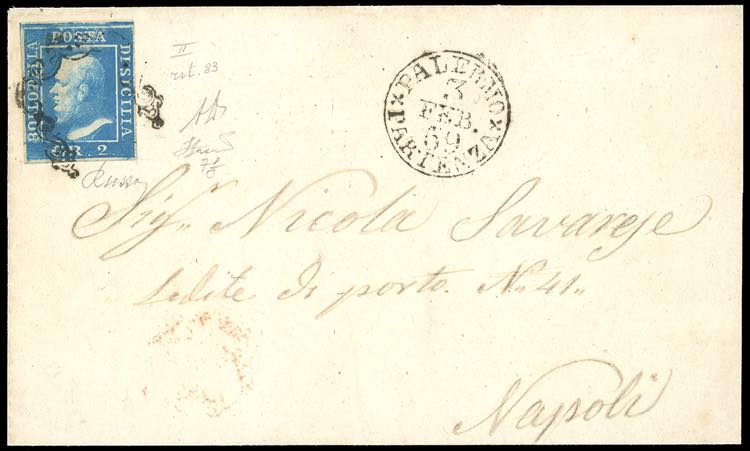 BOLLO DELLA
POSTA
DI SICILIA
GR. 2
II
rit. 83
PALERMO
3
FEB.
59
PARTENZA
Sig.r Nicola Savarese
di porto. N.o 41..
Napoli